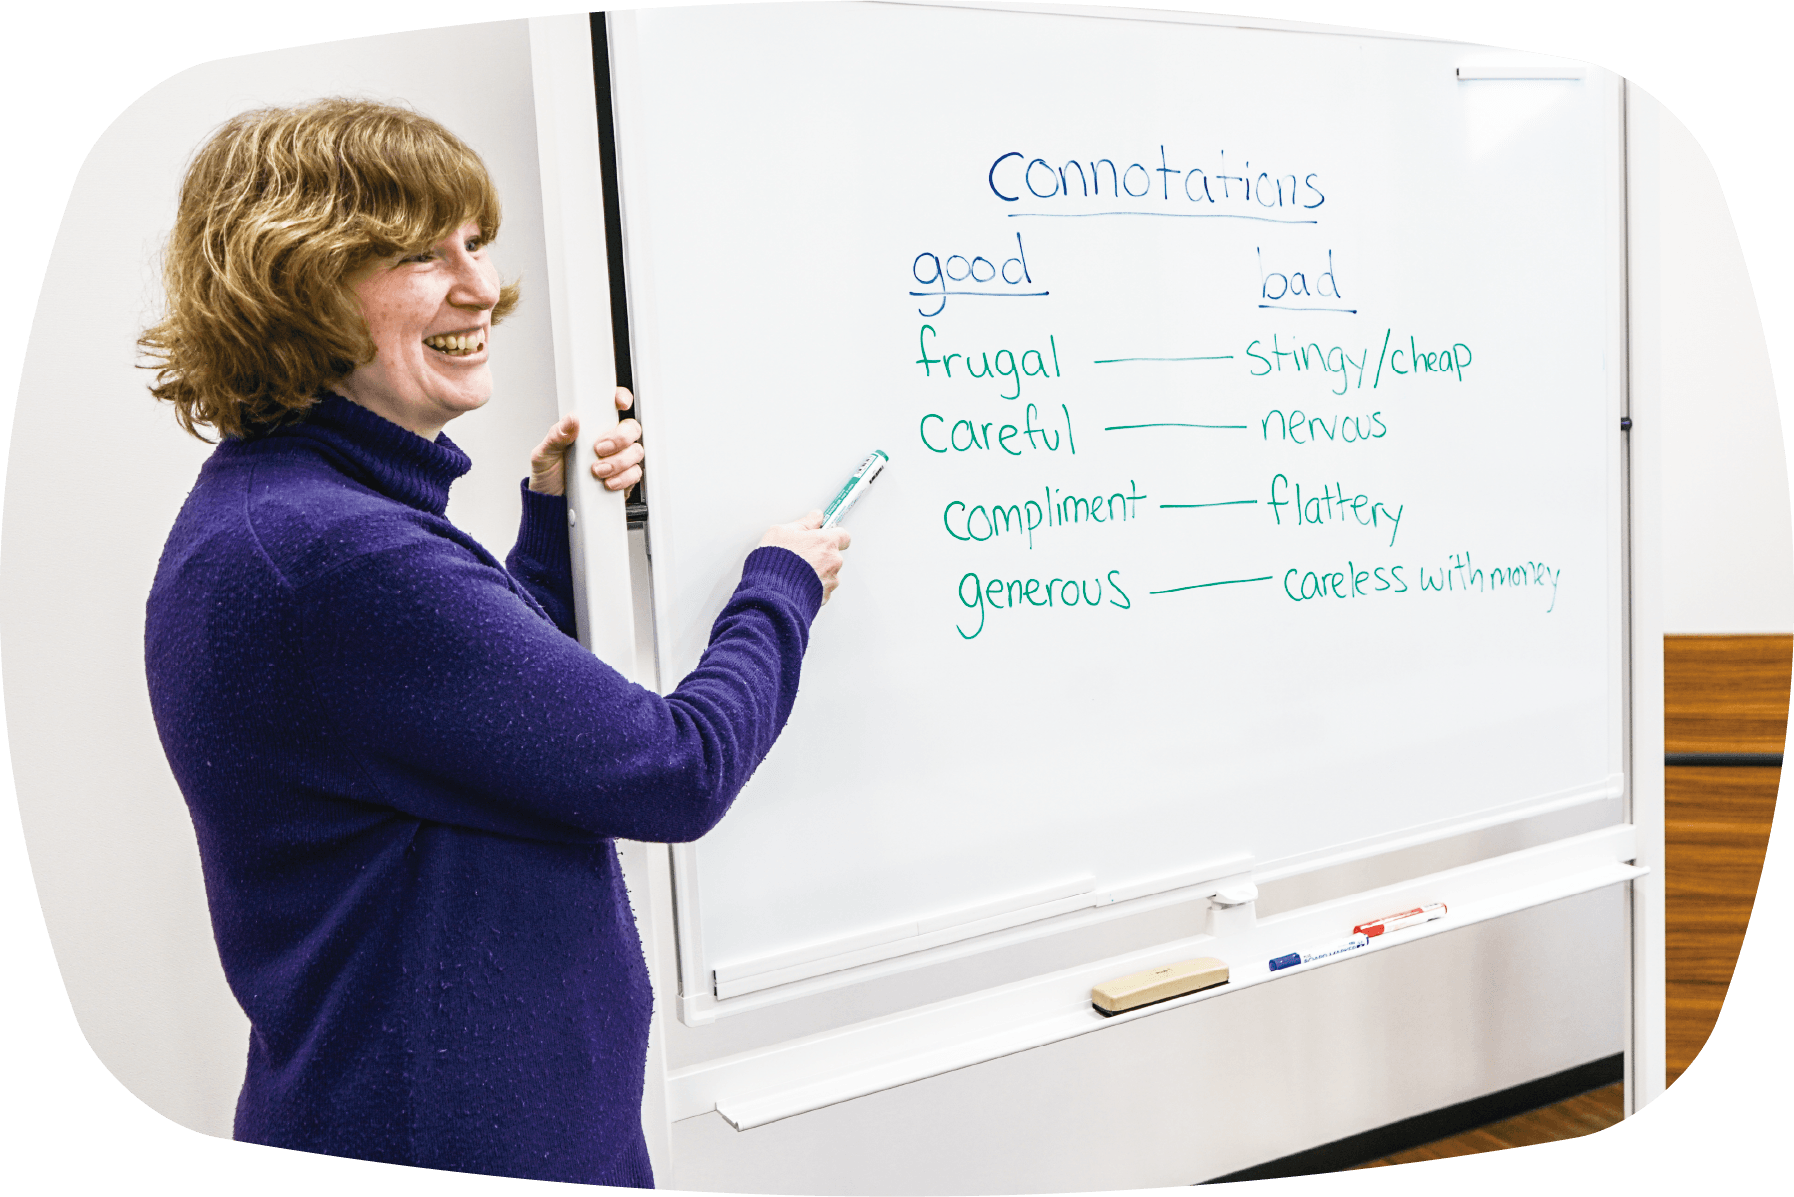 Connotations
good bad
frugal — stingy/cheap
Careful — nervous
compliment — flattery
generous — careless with money